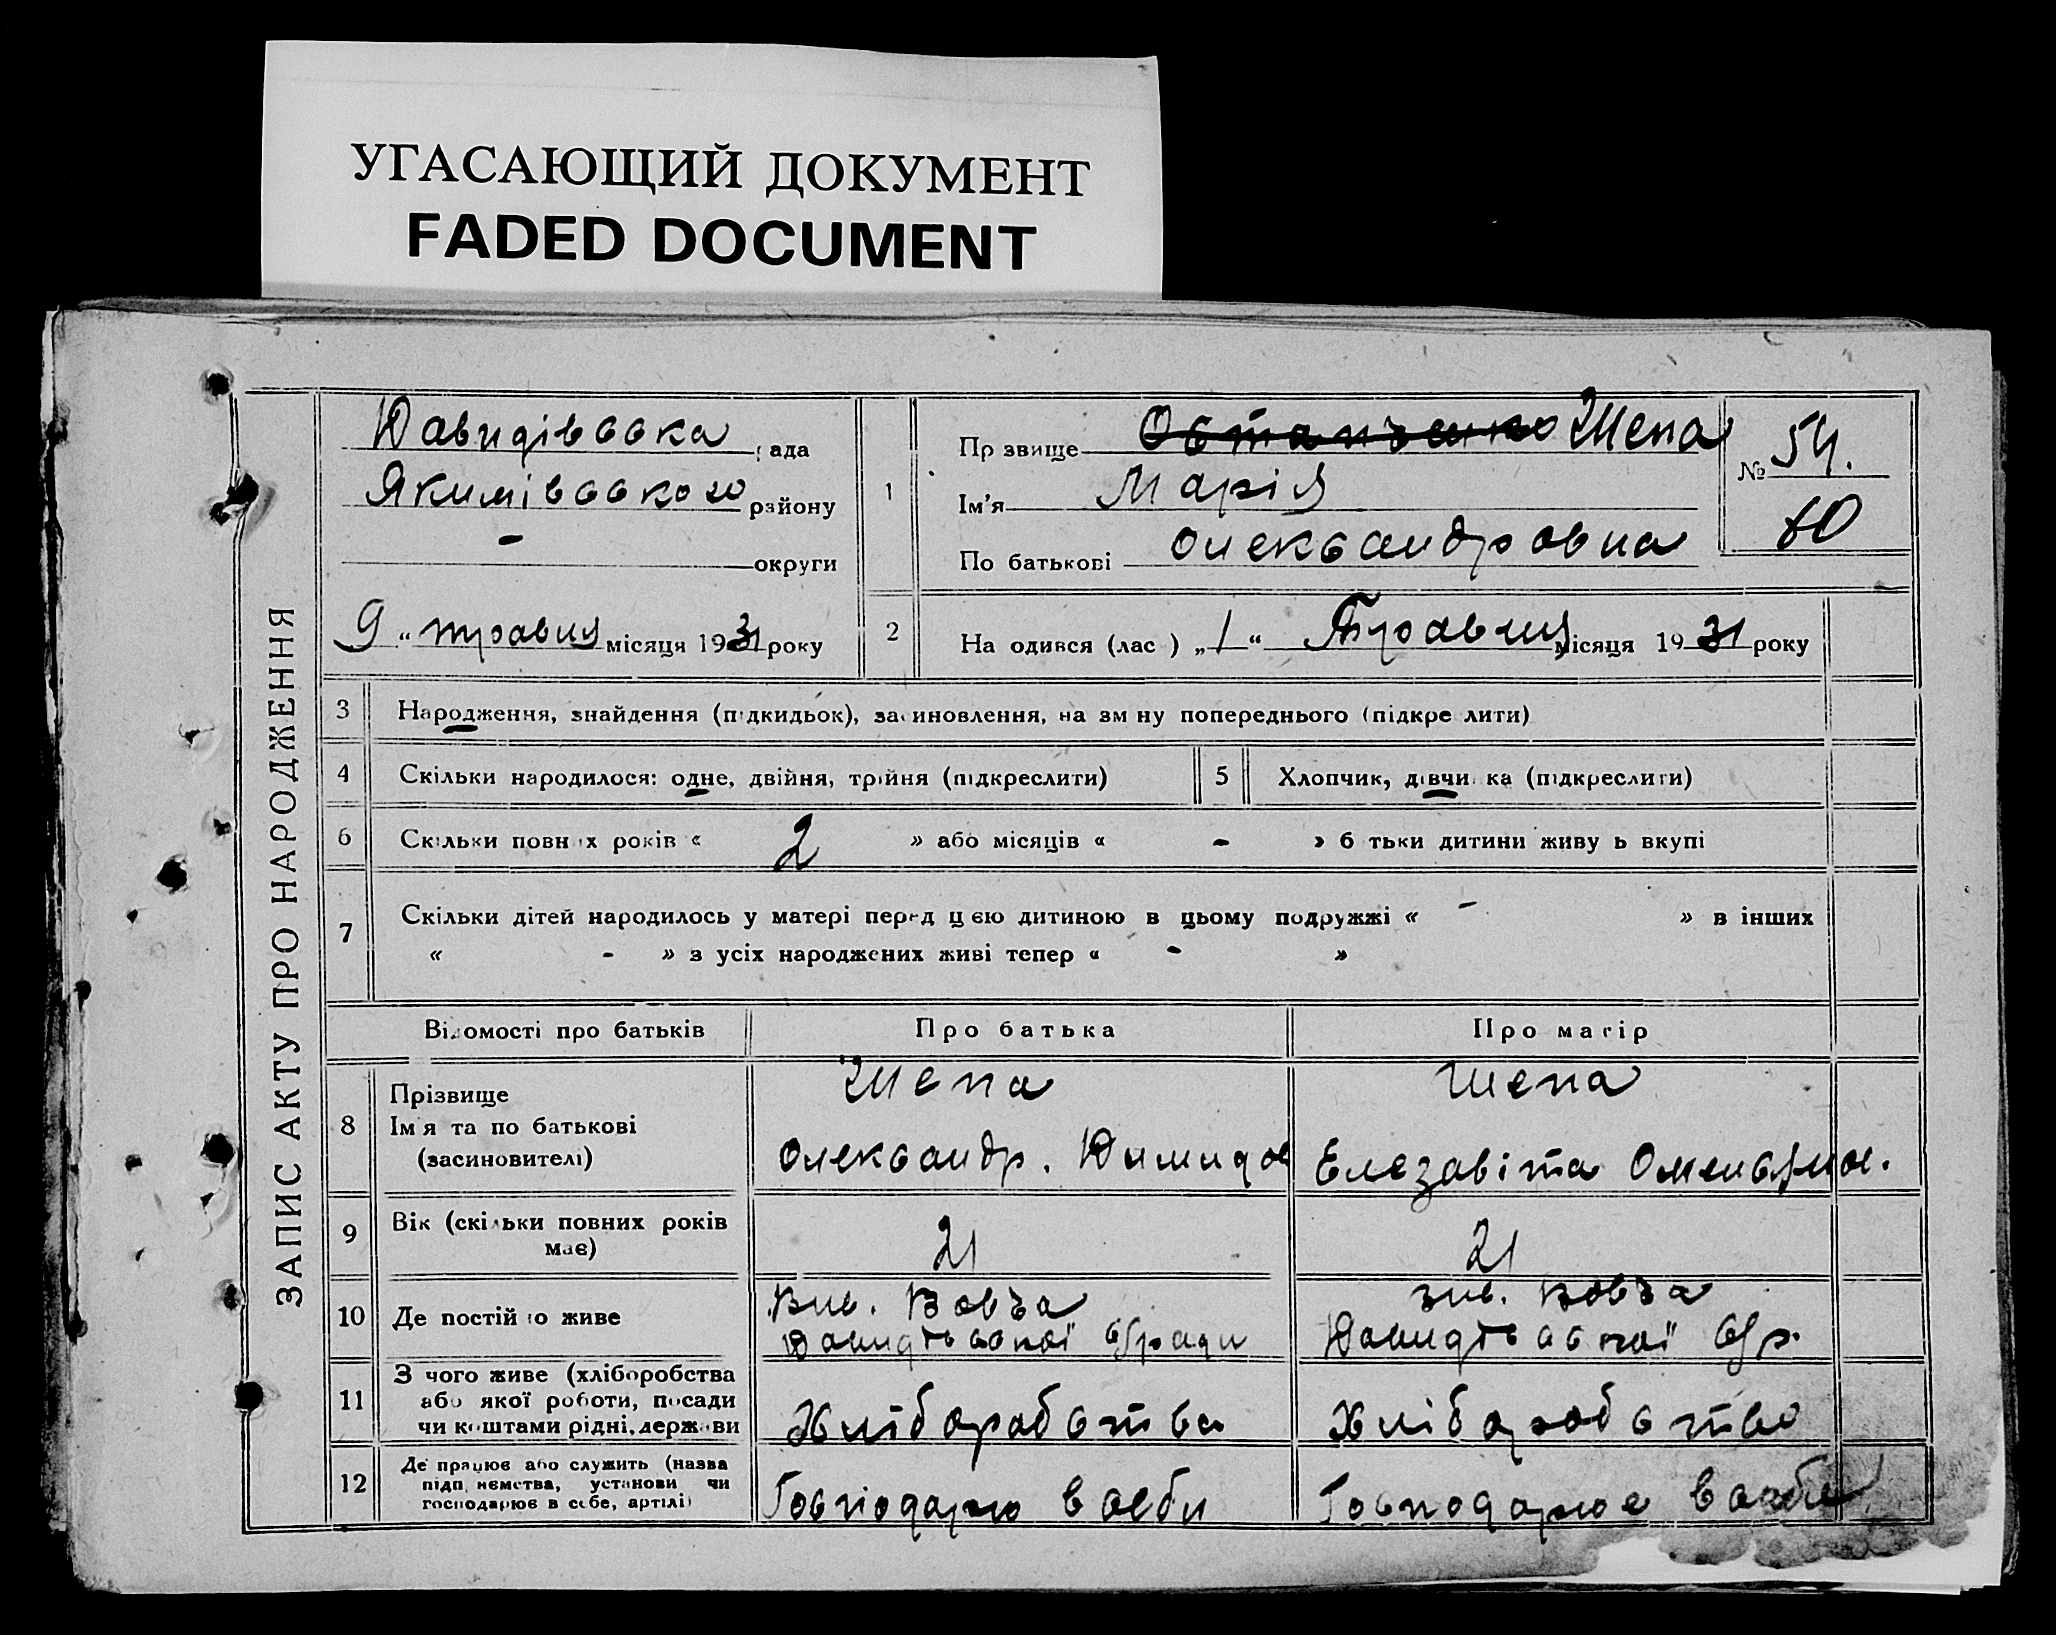 УГАСАЮЩИЙ ДОКУМЕНТ
FADED DOCUMENT
ЗАПИС АКТУ ПРО НАРОДЖЕННЯ
Давидівська рада
Якимівського району
- округи
9 " травня місяця 1931 року
1
Пр звище Остапченко Шепа
Ім'я Марія
По батькові Олександровна
№ 54.
2
На одився (лас ) „ 1 “ Травня місяця 1931 року
3 Народження, знайдення (підкидьок), засиновлення, на зм ну попереднього (підкре лити)
4 Скільки народилося: одне, двійня, трійня (підкреслити)
5 Хлопчик, дівчи ка (підкреслити)
6 Скільки повних років « 2 » або місяців « - » б тьки дитини живу ь вкупі
7 Скільки дітей народилось у матері перед ц єю дитиною в цьому подружжі « - » в інших
« - » з усіх народжених живі тепер « - »
Відомості про батьків Про батька Про матір
8 Прізвище
Ім я та по батькові
(засиновителі)
Шепа
Олександр. Димидов
Шепа
Елезавіта Омельян.
9 Вік (скільки повних років
має)
21
21
10 Де постій о живе
Вовча
Давидівської с/ради
Вовча
Давидівської с/р.
11 З чого живе (хліборобства
або якої роботи, посади
чи коштами рідні, держави
Хліборобства
Хліборобство
12 Де працює або служить (назва
підп немства, установи чи
господарює в себе, артілі)
Господарює в себи
Господарює в себе